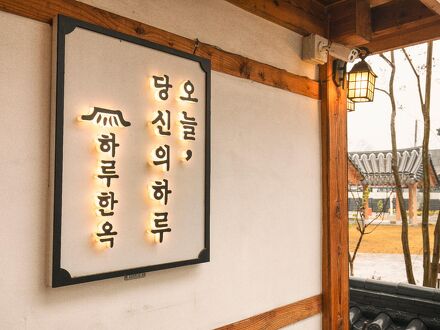 오늘,
당신의하루
하루한옥